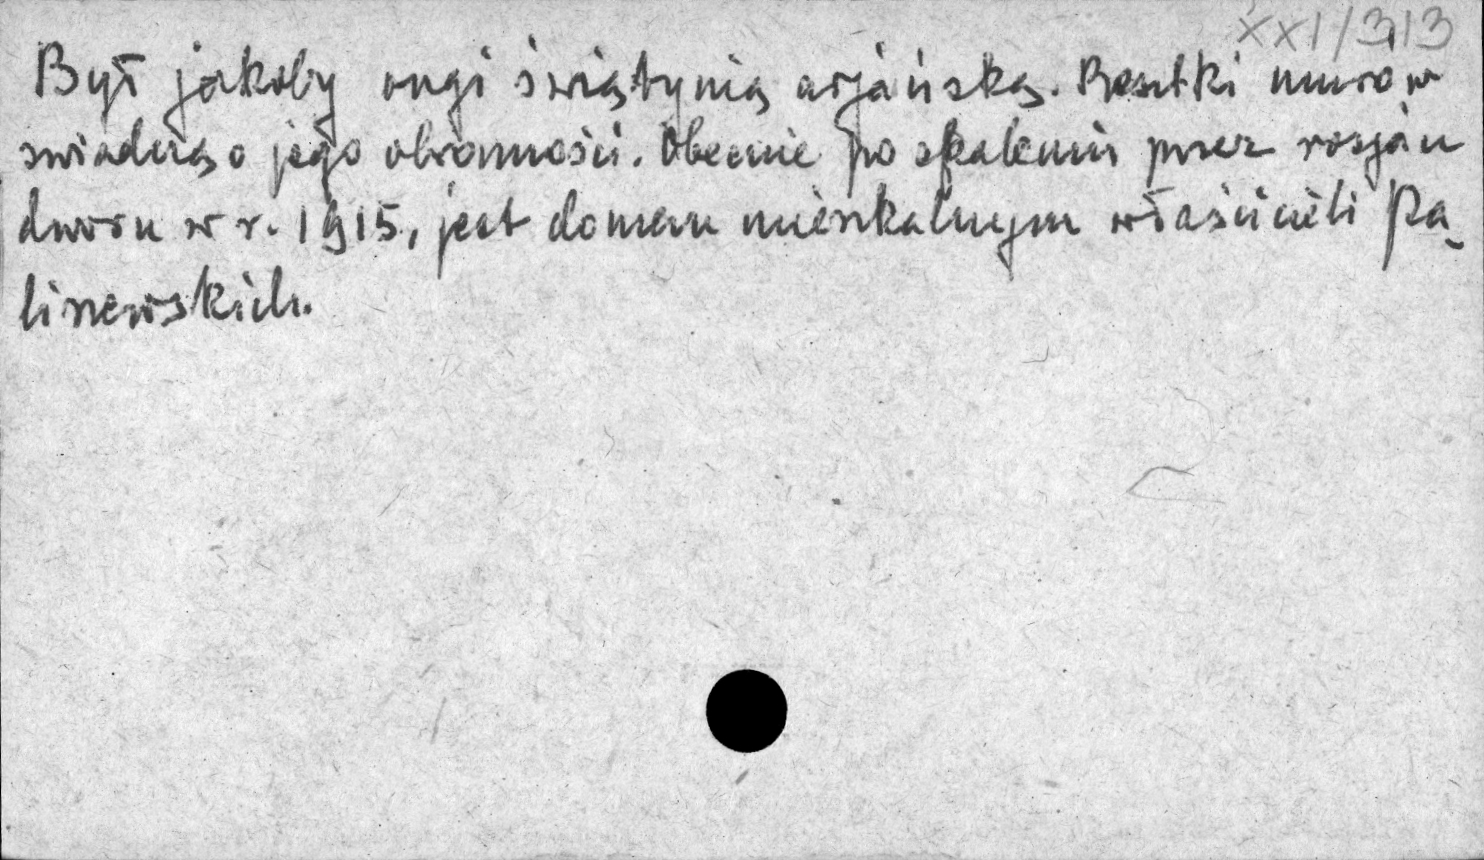 XXI/313
Był jakoby ongi świątynią arjańską. Resztki murów
swiadczą o jego obronności. Obecnie po spaleniu przez rosjan
dworu w r. 1915, jest domem mieszkalnym właścicieli Pa-
liszewskich.